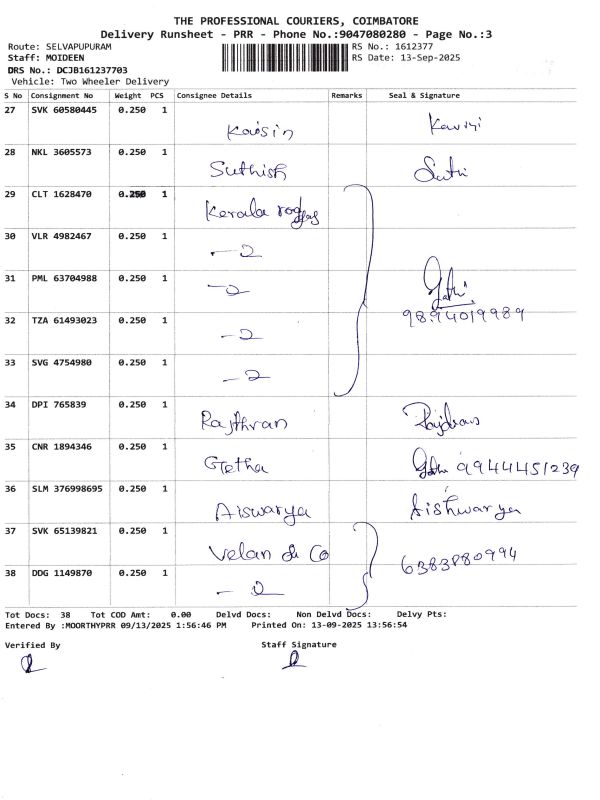 THE PROFESSIONAL COURIERS, COIMBATORE
Delivery Runsheet - PRR - Phone No.:9047080280 - Page No.:3
Route: SELVAPUPURAM RS No.: 1612377
Staff: MOIDEEN RS Date: 13-Sep-2025
DRS No.: DCJB161237703
Vehicle: Two Wheeler Delivery
S No Consignment No Weight PCS Consignee Details Remarks Seal & Signature
27 SVK 60580445 0.250 1
28 NKL 3605573 0.250 1 Suthish
29 CLT 1628470 0.250 1 Kerala
30 VLR 4982467 0.250 1
31 PML 63704988 0.250 1
32 TZA 61493023 0.250 1 9894019989
33 SVG 4754980 0.250 1
34 DPI 765839 0.250 1 Rajthran
35 CNR 1894346 0.250 1 Getha 9944451239
36 SLM 376998695 0.250 1 Aiswarya Aishwarya
37 SVK 65139821 0.250 1 Velan & Co 6383880994
38 DDG 1149870 0.250 1
Tot Docs: 38 Tot COD Amt: 0.00 Delvd Docs: Non Delvd Docs: Delvy Pts:
Entered By :MOORTHYPRR 09/13/2025 1:56:46 PM Printed On: 13-09-2025 13:56:54
Verified By Staff Signature